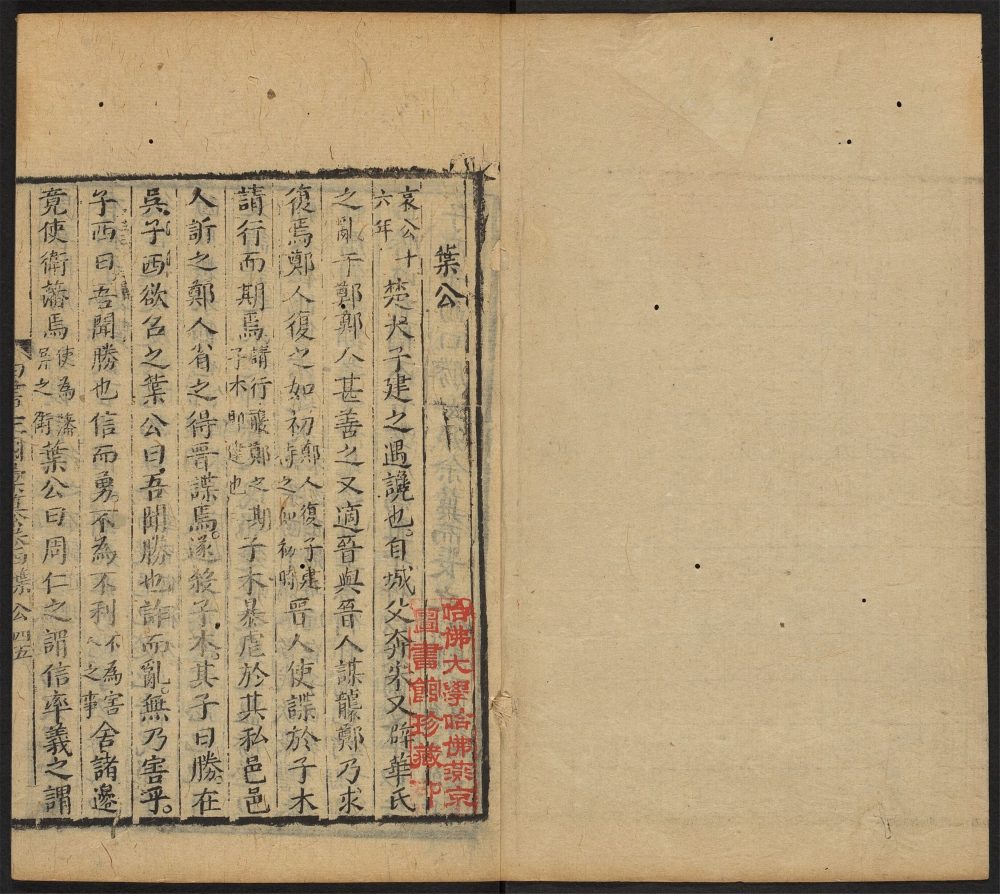 葉公
哀公十六年楚大子建之遇讒也自城父奔宋又辟華氏
之亂于鄭鄭人甚善之又適晉與晉人謀襲鄭乃求
復焉鄭人復之如初鄭人復子建待之如初時晉人使諜於子木
請行而期焉請行襲鄭之期子木即建也子木暴虐於其私邑邑
人訴之鄭人省之得晉諜焉遂殺子木其子曰勝在
吳子西欲召之葉公曰吾聞勝也詐而亂無乃害乎
子西曰吾聞勝也信而勇不為不利不為害人之事舍諸邊
竟使衛藩焉使為藩屏之衛葉公曰周仁之謂信率義之謂
葉公 四五
哈佛大學哈佛燕京
圖書館珍藏印